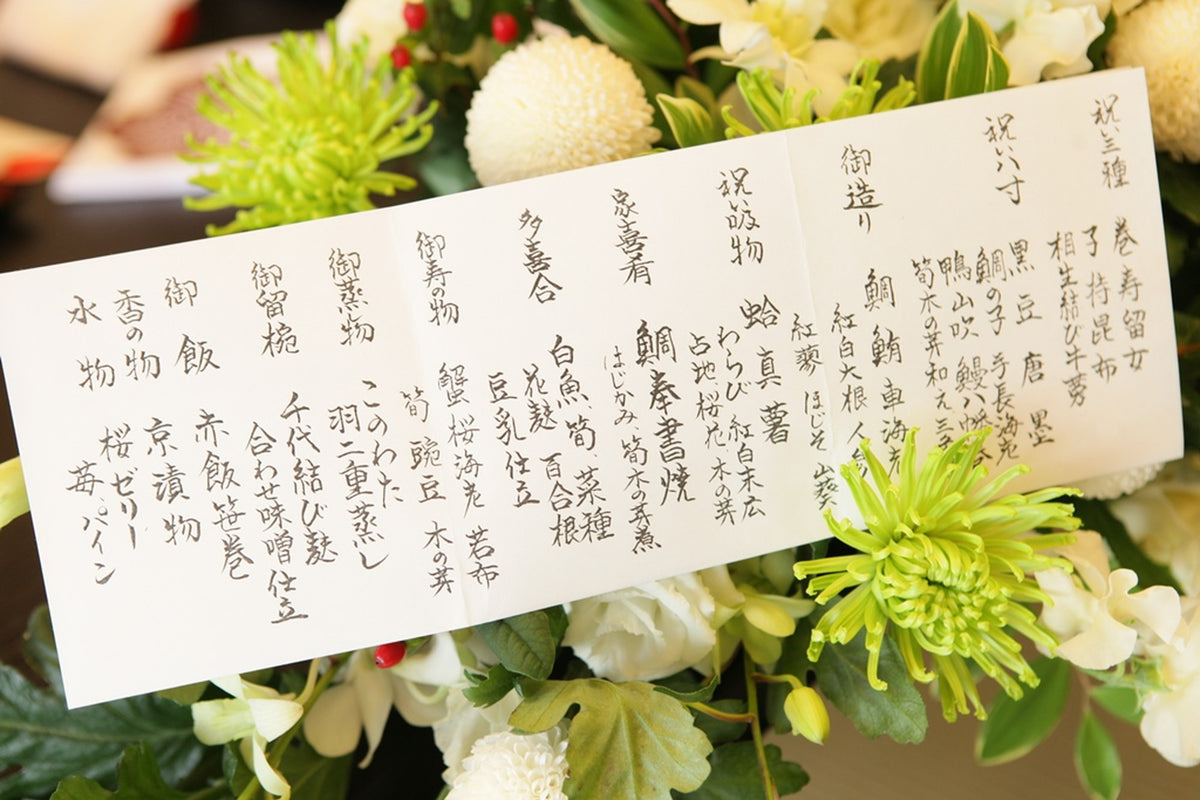 祝い三種
巻寿留女
子持昆布
相生結び牛蒡
祝い八寸
黒豆 唐墨
鯛の子 手長海老
鴨山吹 鰻八幡
筍木の芽和え
御造り
鯛 鮪 車海老
紅白大根
紅蓼 ほじそ 山葵
祝い吸物
蛤真薯
わらび 紅白末広
占地、桜花、木の芽
家喜肴
鯛奉書焼
はじかみ、筍木の芽煮
多喜合
白魚、筍、菜種
花麩 百合根
豆乳仕立
御寿の物
蟹 桜海老 若布
筍 豌豆 木の芽
御蒸し物
このわた
羽二重蒸し
御留椀
千代結び麩
合わせ味噌仕立
御飯
赤飯笹巻
香の物
京漬物
水物
桜ゼリー
苺、パイン